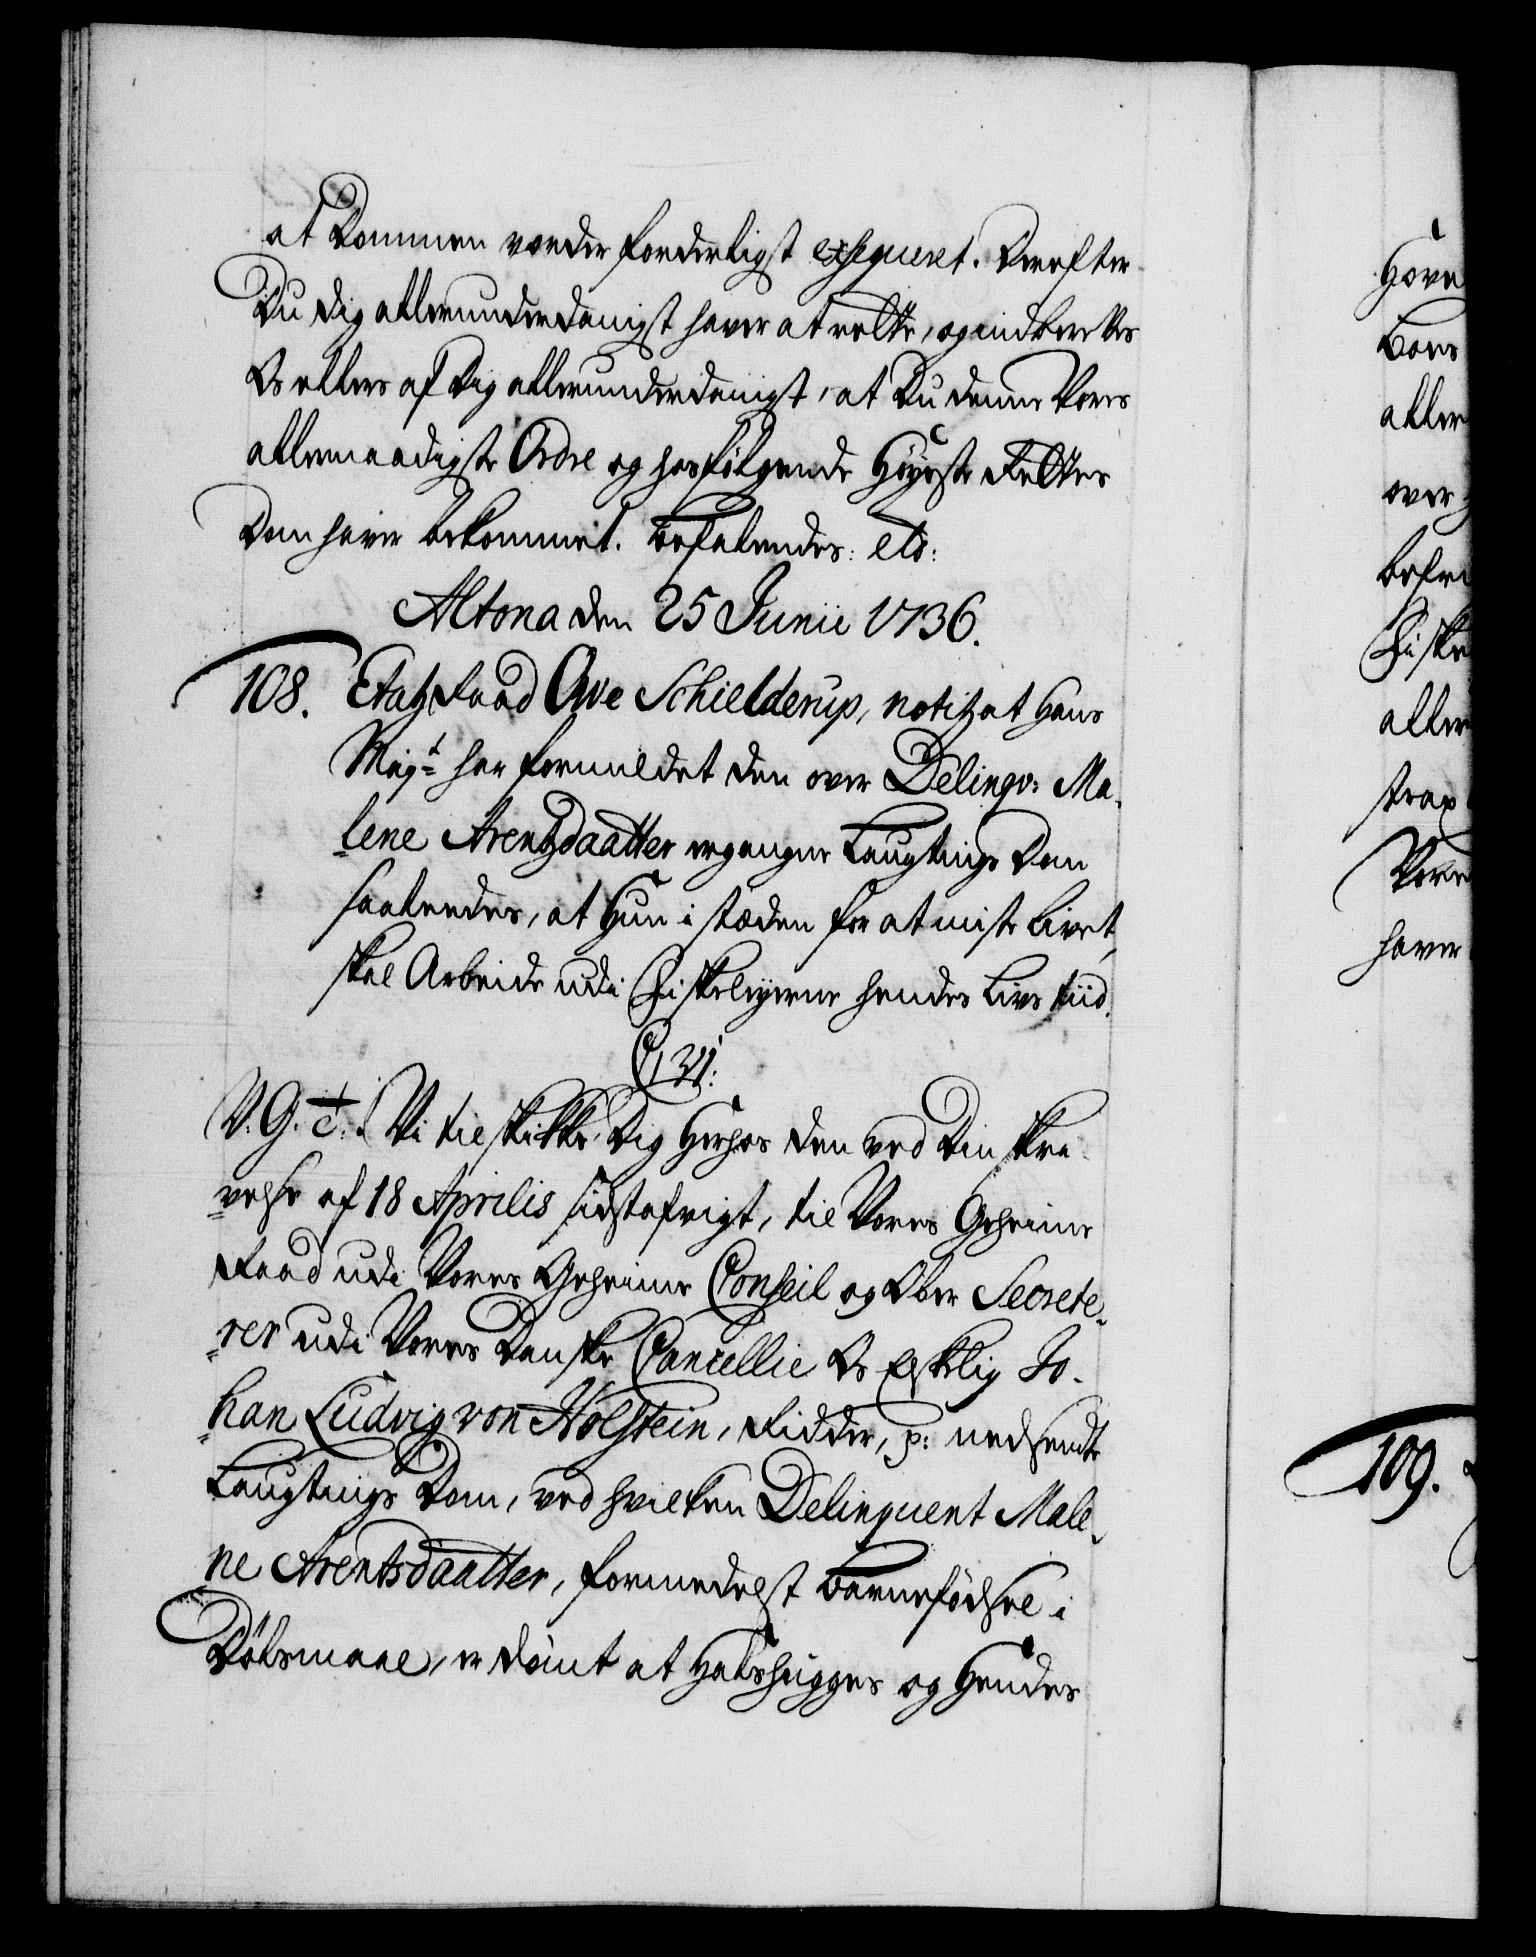 at Dommen vorder forderligst exsequeret. Derefter
Du dig allerunderdanigst haver at rette, og indberettes
Os ellers af Dig allerunderdanigst, at Du denne Vores
allernaadigste Ordre og hosfølgende Høyeste Rettes
Dom haver bekommet. Befalendes: etc:
Altona den 25 Junii 1736.
108. Etatz Raad Ove Schielderup, notitz at Hans
Mayt har formildet den over Delinqv: Ma-
lene Arentzdaatter ergangne Laugtings Dom
saaledes, at Hun i stæden for at miste Livet,
skal Arbeide udi Fiskeleyerne hendes Livs tiid.
C. VI:
V. G. T. Vi tilskikke Dig Herhos den ved Din skri-
velse af 18 Aprilis sidstafvigt, til Vores Geheime
Raad udi Vores Geheime Conseil og Ober Secrete-
rer udi Vores Danske Cancellie Os Elskelig Jo-
han Ludvig von Holstein, Ridder, p: nedsendte
Laugtings Dom, ved hvilken Delinquent Male-
ne Arentsdaatter, formedelst Barnefødsel i
Dølsmaal, er dømt at Halshugges og Hendes
Hove
Bors
aller
over
befri
Fiske
aller
strax
Vore
haver
109.